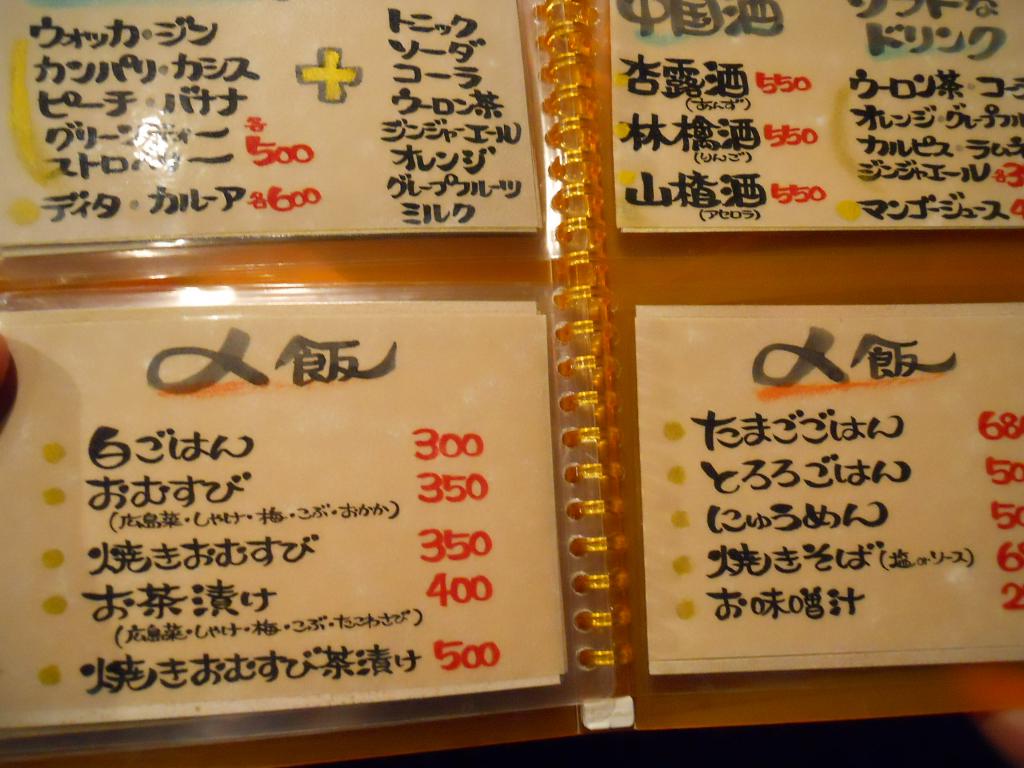 ウォッカ・ジン
カンパリ・カシス
ピーチ・バナナ
グリーンティー
ストロベリー 各500
ディタ・カルーア 各600
+
トニック
ソーダ
コーラ
ウーロン茶
ジンジャーエール
オレンジ
グレープフルーツ
ミルク
中国酒
杏露酒 550
(あんず)
林檎酒 550
(りんご)
山楂酒 550
(アセロラ)
ソフトな
ドリンク
ウーロン茶・コー
オレンジ・グレープフル
カルピス・ラムネ
ジンジャエール 各3
マンゴージュース 4
〆飯
白ごはん 300
おむすび 350
(広島菜・しゃけ・梅・こぶ・おかか)
焼きおむすび 350
お茶漬け 400
(広島菜・しゃけ・梅・こぶ・たこわさび)
焼きおむすび茶漬け 500
〆飯
たまごごはん 680
とろろごはん 50
にゅうめん 50
焼きそば(塩orソース) 6
お味噌汁 2